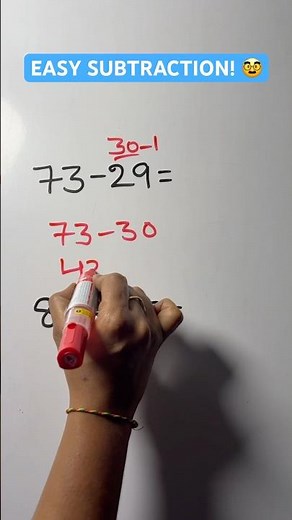 EASY SUBTRACTION! 🥸
30-1
73-29=
73-30
43
8